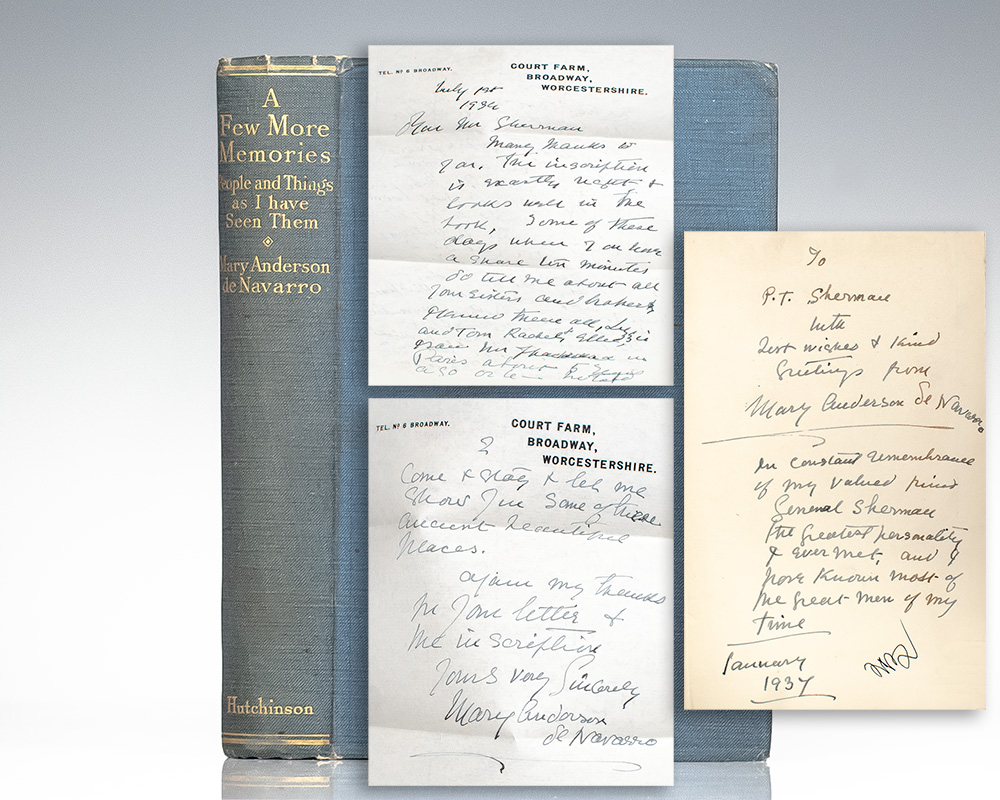 A
Few More
Memories
People and Things
as I have
Seen Them
Mary Anderson
de Navarro
Hutchinson
TEL. Nº 6 BROADWAY.
COURT FARM,
BROADWAY,
WORCESTERSHIRE.
July 1st
1934
Dear Mr Sherman
Many thanks to
you. The inscription
is exactly right &
looks well in the
book, Some of these
days when you have
a spare ten minutes
do tell me about all
your sisters and
them all,
and Tom Rachel
in
Paris about 5
ago
TEL. Nº 6 BROADWAY.
COURT FARM,
BROADWAY,
WORCESTERSHIRE.
2
Come & stay & let me
show you some of these
ancient beautiful
places.
Again my thanks
for your letter &
the inscription
Yours very Sincerely
Mary Anderson
de Navarro
To
P.T. Sherman
with
best wishes & kind
greetings from
Mary Anderson de Navarro
In constant remembrance
of my valued friend
General Sherman
the greatest personality
I ever met, and I
have known most of
the great men of my
time
January
1937